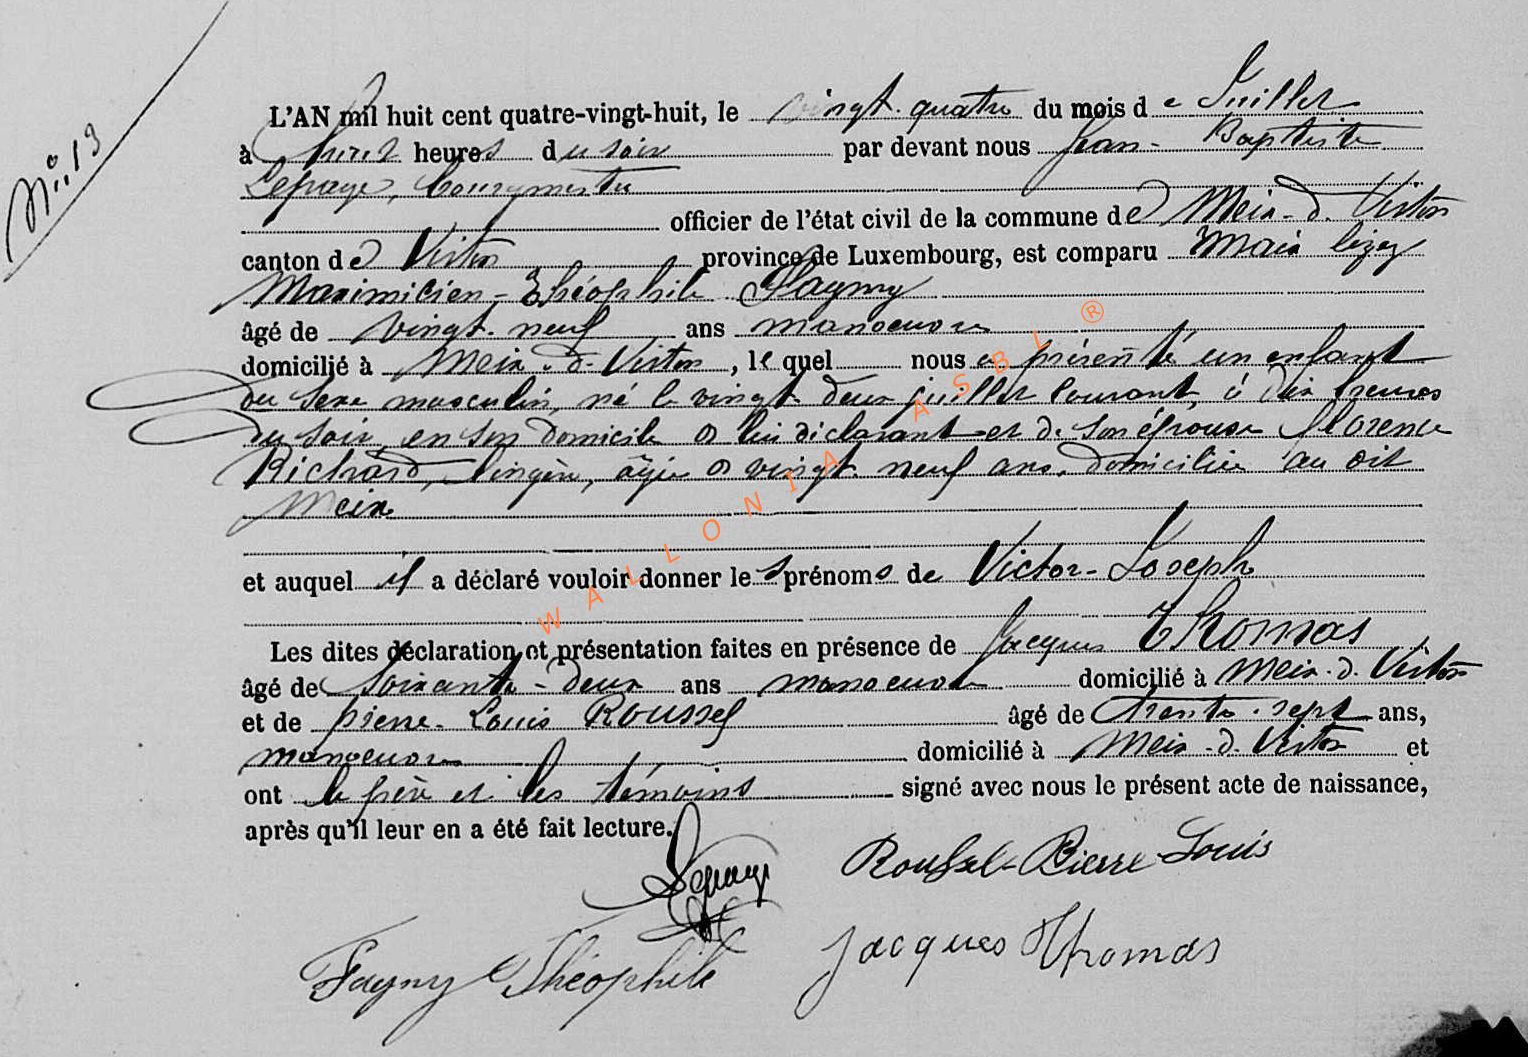 N° 13
L'AN mil huit cent quatre-vingt-huit, le vingt-quatre du mois de Juillet
à heures du soir par devant nous Jean-Baptiste
Lepage, bourgmestre
officier de l'état civil de la commune de Meix-d-Virton
canton de Virton province de Luxembourg, est comparu
Maximilien-Théophile Fagny
âgé de vingt-neuf ans manoeuvre
domicilié à Meix-d-Virton, lequel nous a présenté un enfant
du sexe masculin, né le vingt-deux juillet courant, à dix heures
du soir, en son domicile de lui déclarant et de son épouse Florence
Richard, lingère, âgée de vingt-neuf ans, domiciliée au dit
Meix
et auquel il a déclaré vouloir donner les prénoms de Victor-Joseph
Les dites déclaration et présentation faites en présence de Jacques Thomas
âgé de soixante-deux ans manoeuvre domicilié à Meix-d-Virton
et de pierre-Louis Roussel âgé de trente-sept ans,
manoeuvre domicilié à Meix-d-Virton et
ont le père et les témoins signé avec nous le présent acte de naissance,
après qu'il leur en a été fait lecture.
Lepage
Roussel-Pierre Louis
Fagny Théophile
Jacques Thomas
WALLONIA ASBL ®